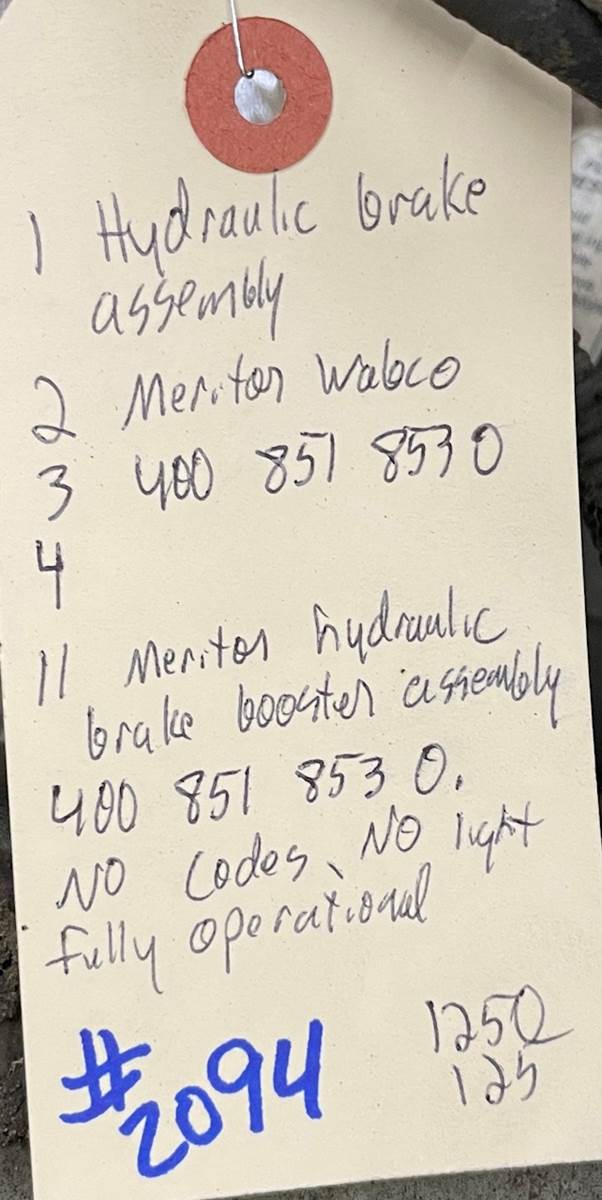 1 Hydraulic brake
assembly
2 Meritor Wabco
3 400 851 853 0
4
11 Meritor hydraulic
brake booster assembly
400 851 853 0.
NO codes, NO light
fully operational
#2094
1250
125